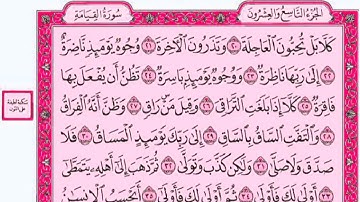 الجزء التاسع والعشرون
سورة القيامة
كَلَّا بَلْ تُحِبُّونَ الْعَاجِلَةَ ٢٠ وَتَذَرُونَ الْآخِرَةَ ٢١ وُجُوهٌ يَوْمَئِذٍ نَاضِرَةٌ
٢٢ إِلَىٰ رَبِّهَا نَاظِرَةٌ ٢٣ وَوُجُوهٌ يَوْمَئِذٍ بَاسِرَةٌ ٢٤ تَظُنُّ أَنْ يُفْعَلَ بِهَا
فَاقِرَةٌ ٢٥ كَلَّا إِذَا بَلَغَتِ التَّرَاقِيَ ٢٦ وَقِيلَ مَنْ رَاقٍ ٢٧ وَظَنَّ أَنَّهُ الْفِرَاقُ
٢٨ وَالْتَفَّتِ السَّاقُ بِالسَّاقِ ٢٩ إِلَىٰ رَبِّكَ يَوْمَئِذٍ الْمَسَاقُ ٣٠ فَلَا
صَدَّقَ وَلَا صَلَّىٰ ٣١ وَلَٰكِنْ كَذَّبَ وَتَوَلَّىٰ ٣٢ ثُمَّ ذَهَبَ إِلَىٰ أَهْلِهِ يَتَمَطَّىٰ
٣٣ أَوْلَىٰ لَكَ فَأَوْلَىٰ ٣٤ ثُمَّ أَوْلَىٰ لَكَ فَأَوْلَىٰ ٣٥ أَيَحْسَبُ الْإِنْسَانُ